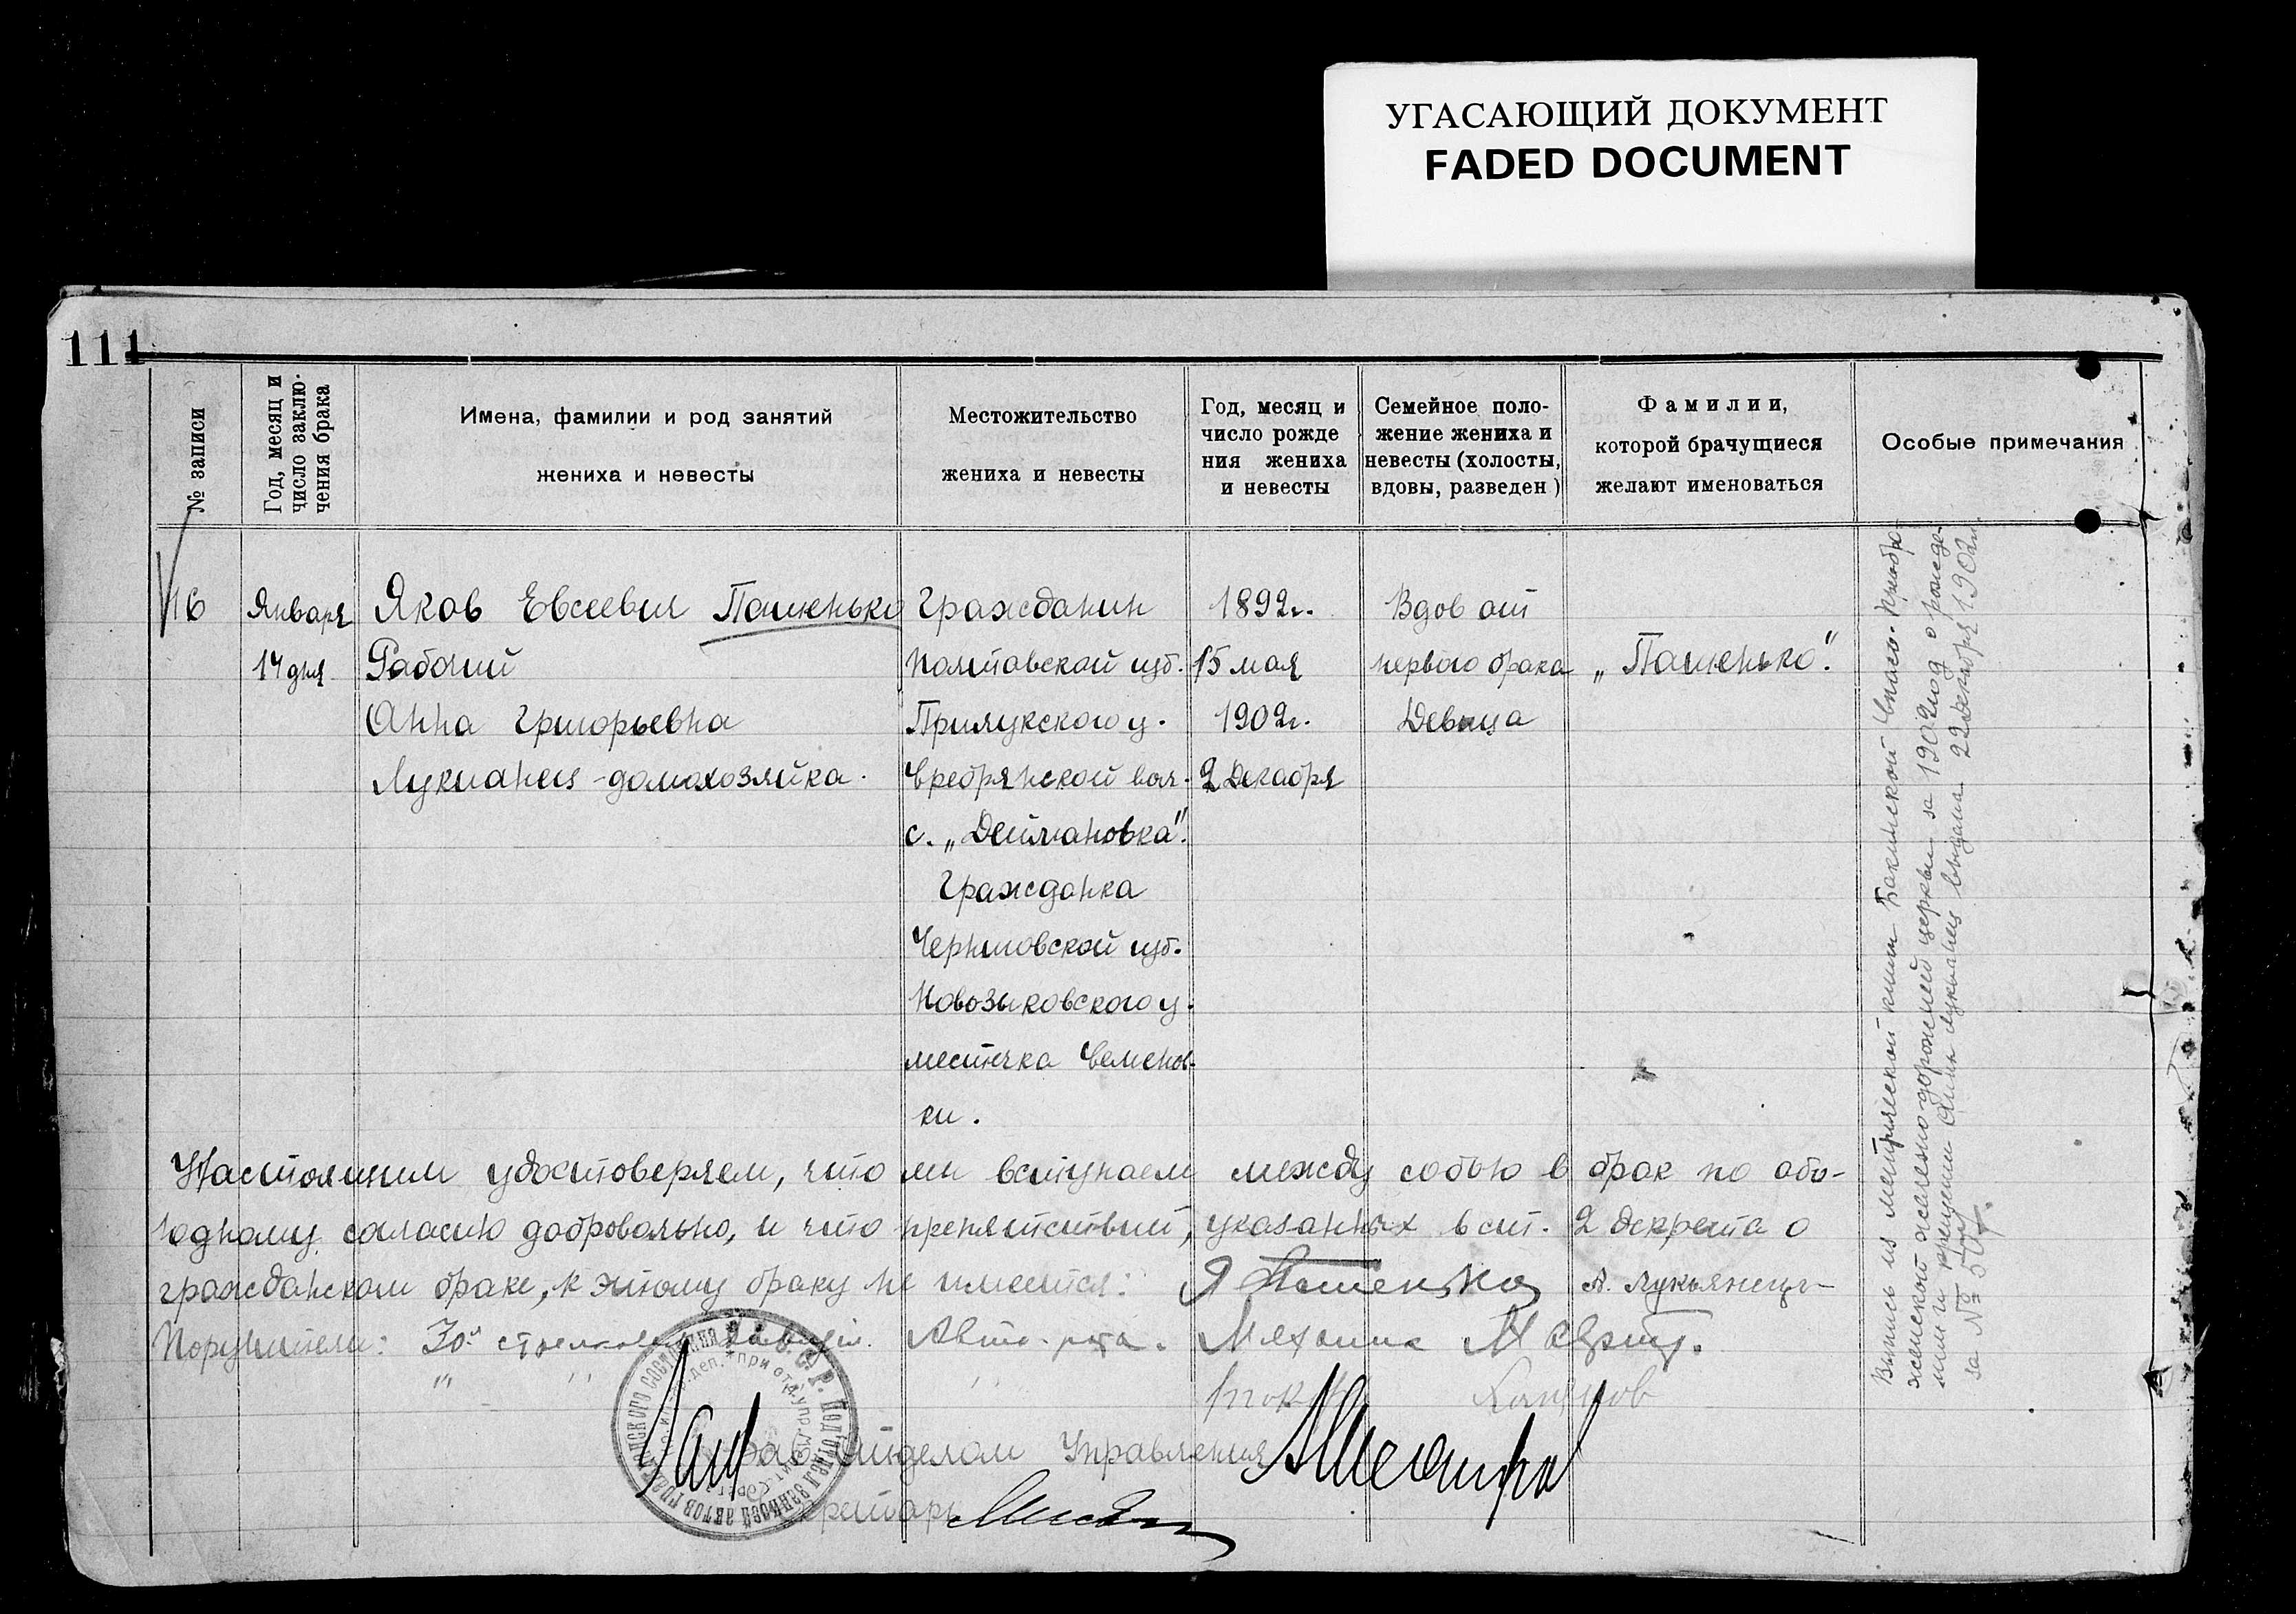 УГАСАЮЩИЙ ДОКУМЕНТ
FADED DOCUMENT
111
№ записи
Год, месяц и
число заклю-
чения брака
Имена, фамилии и род занятий
жениха и невесты
Местожительство
жениха и невесты
Год, месяц и
число рожде
ния жениха
и невесты
Семейное поло-
жение жениха и
невесты (холосты,
вдовы, разведен)
Фамилии,
которой брачущиеся
желают именоваться
Особые примечания
16
Января
14 дня
Яков Евсеевич Пашенько
Рабочий
Анна Григорьевна
Лукианец - домохозяйка.
Гражданин
Полтавской губ.
Прилукского у.
Сребрянской вол.
с. „Деймановка".
Гражданка
Черниговской губ.
Новозыковского у.
местечка Семенов-
ки.
1892г.
15 мая
1902г.
2 Декабря
Вдов от
первого брака
Девица
„Пашенько".
Выпись из метрической книги Бакинской Спасо-Преобра-
женской железно-дорожной церкви за 1902 год о рожде-
нии и крещении Анны Лукианец выдана 22 декабря 1902г.
за №
Настоящим удостоверяем, что мы вступаем между собою в брак по обо-
юдному согласию добровольно, и что препятствий, указанных в ст. 2 декрета о
гражданском браке, к этому браку не имеется: Я Пашенько А. Лукьянец
Поручители: 30й Авто-рота. Механик
" " "
Отделом Управления